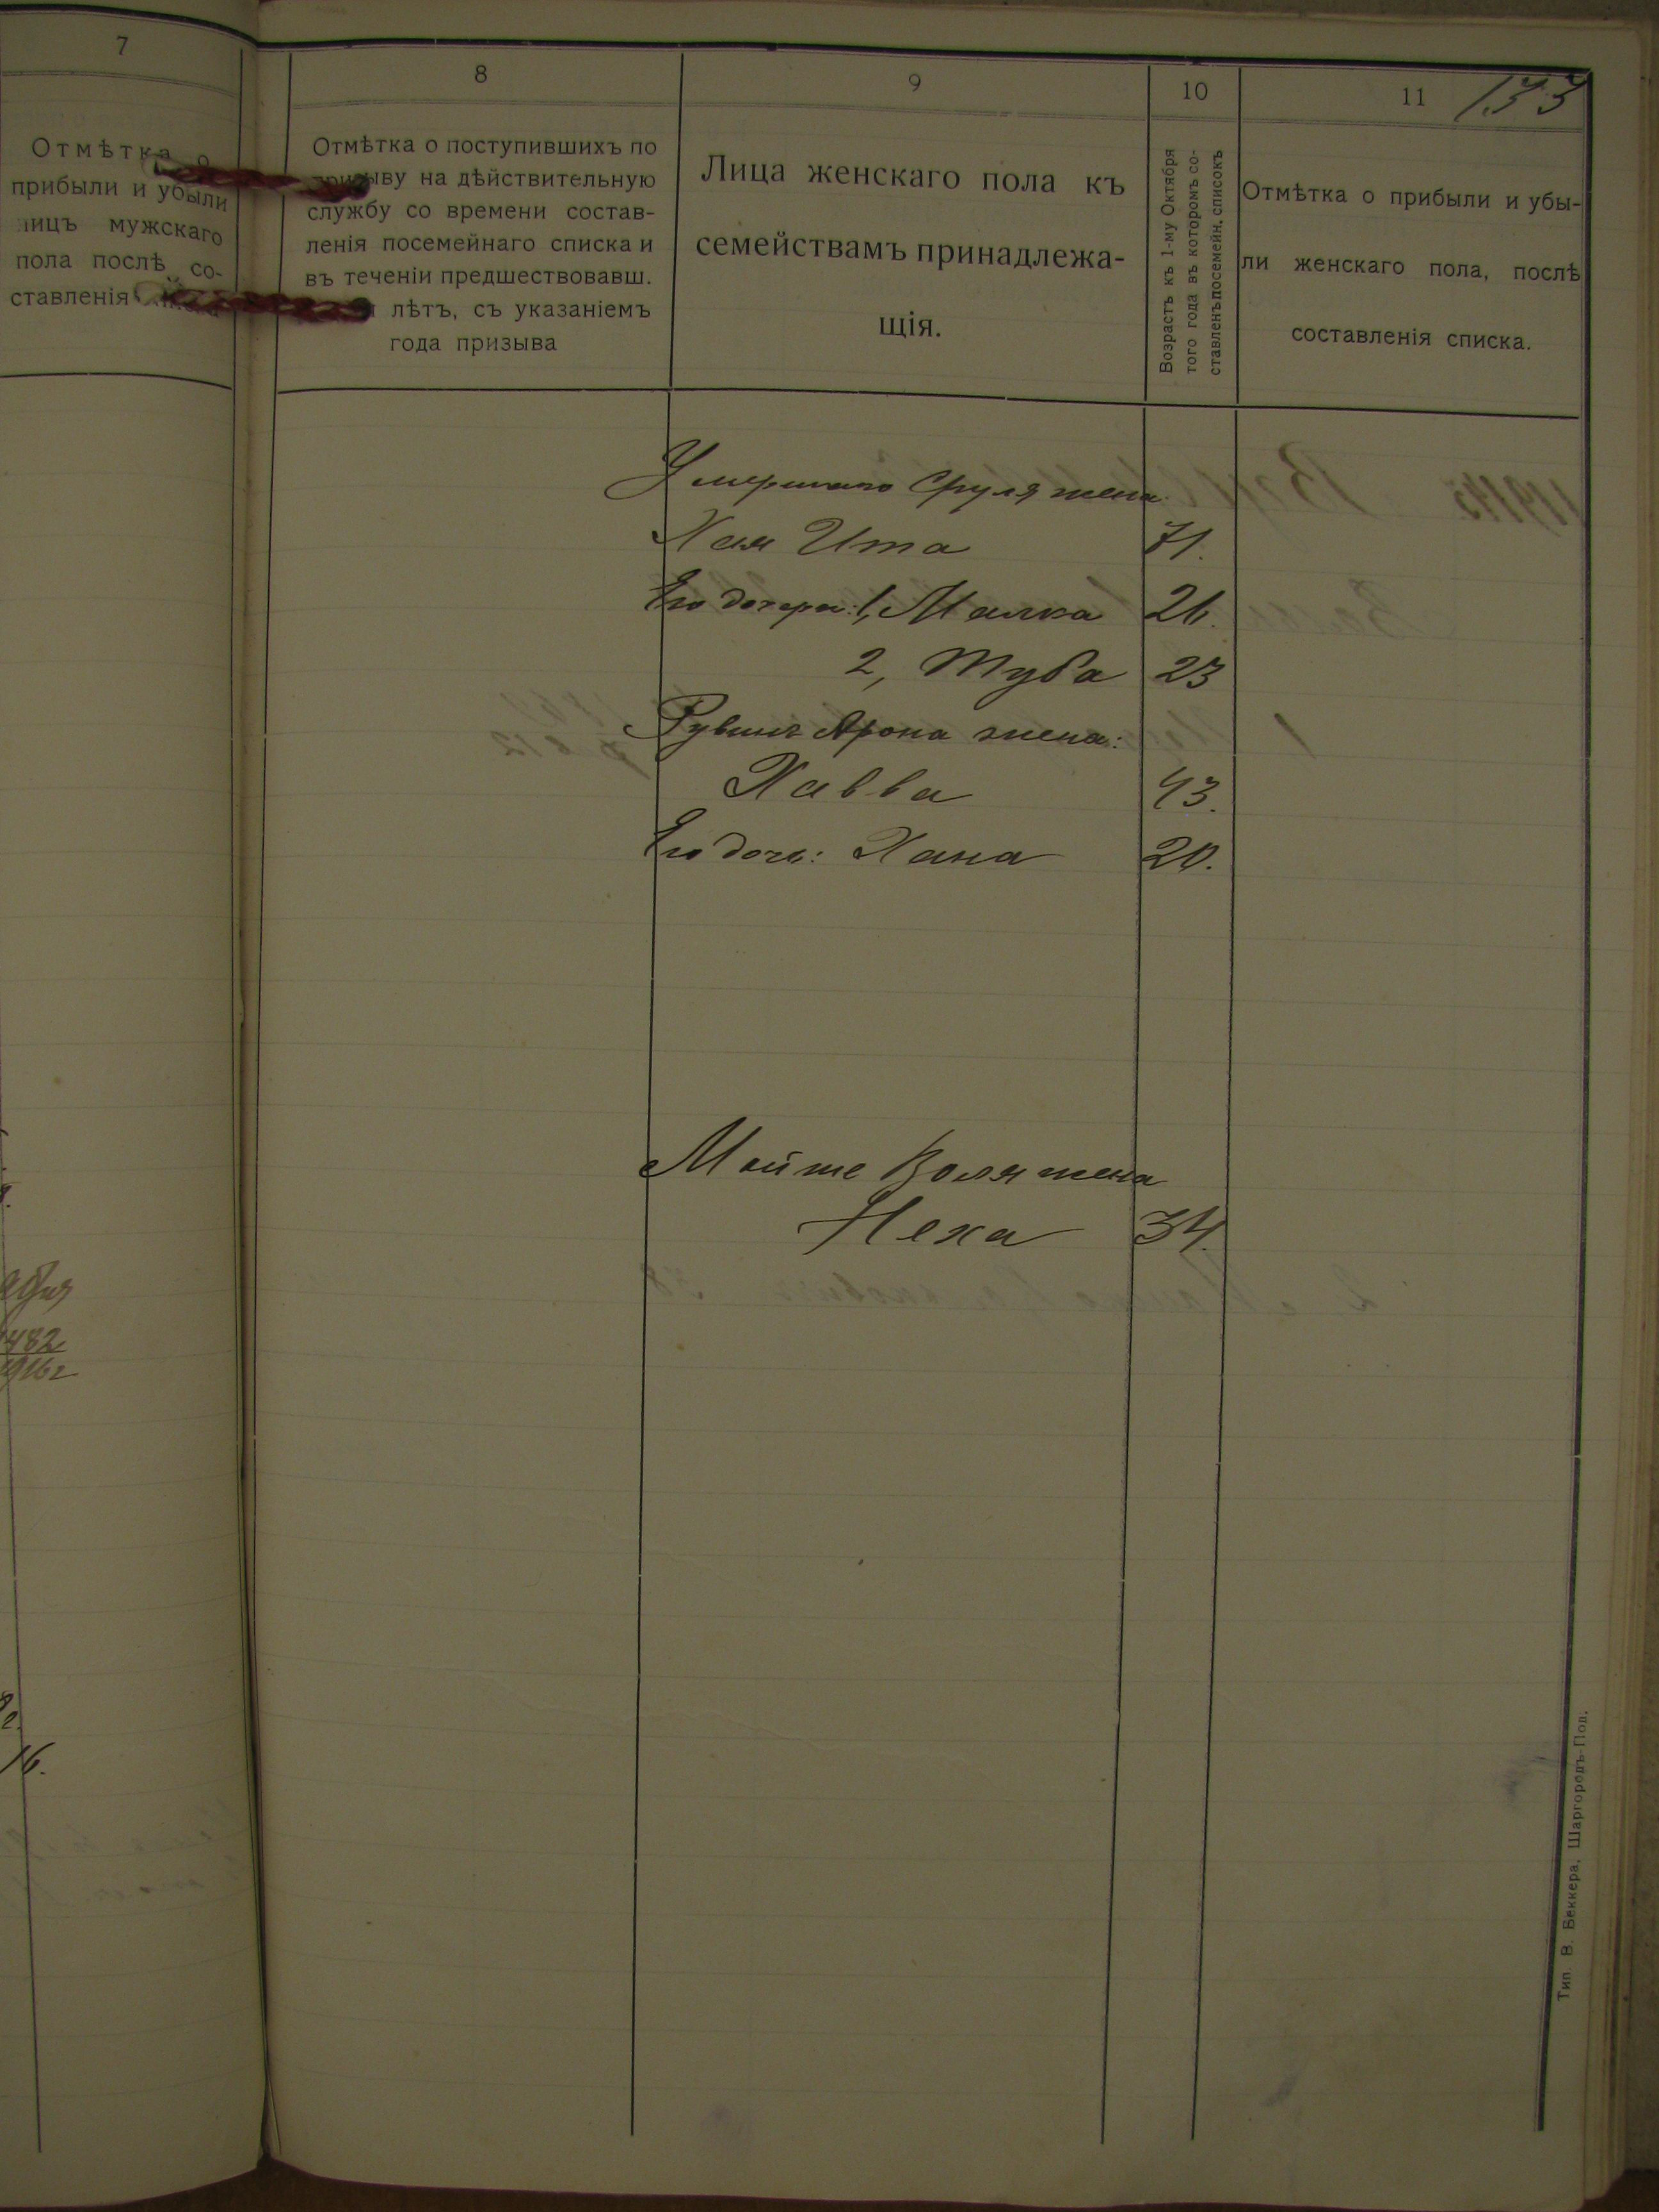 7
Отмѣтка о
прибыли и убыли
лицъ мужскаго
пола послѣ со-
ставленія
482
1916 г
16.
8
Отмѣтка о поступившихъ по
призыву на дѣйствительную
службу со времени состав-
ленія посемейнаго списка и
въ теченіи предшествовавш.
лѣтъ, съ указаніемъ
года призыва
9
Лица женскаго пола къ
семействамъ принадлежа-
щія.
10
Возрастъ къ 1-му Октября
того года въ которомъ со-
ставленъ посемейн. списокъ
11
133
Отмѣтка о прибыли и убы-
ли женскаго пола, послѣ
составленія списка.
Умершаго Сруля жена
Хая Ита 71.
Его дочери: 1, Малка 26.
2, Туба 23
Рувинъ Арона жена:
Хавва 43.
Его дочь: Хана 20.
Мойше Воля жена
Неха 34.
Тип. В. Беккера, Шаргородъ-Под.